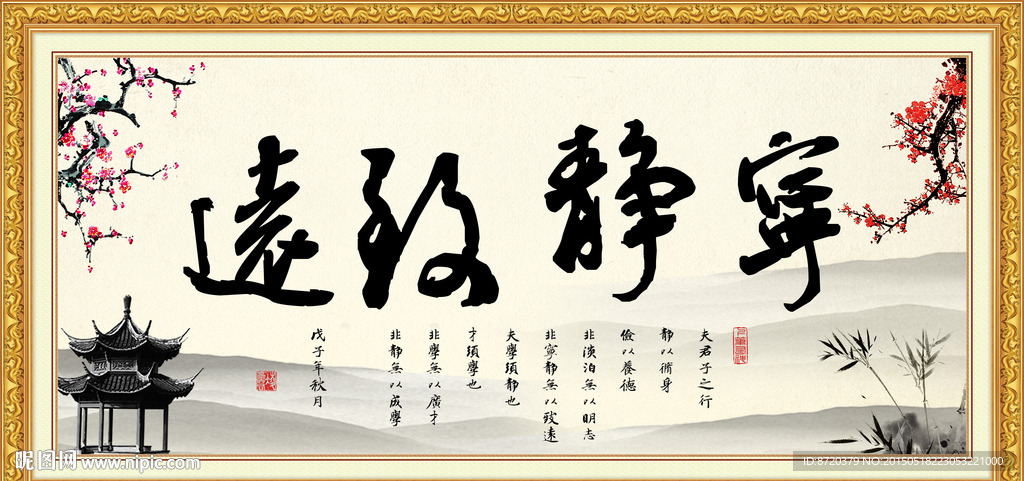 寧靜致遠
夫君子之行
靜以脩身
儉以養德
非淡泊無以明志
非寧靜無以致遠
夫學須靜也
才須學也
非學無以廣才
非靜無以成學
戊子年秋月
昵图网 www.nipic.com
ID:8720379 NO:20150518223053221000